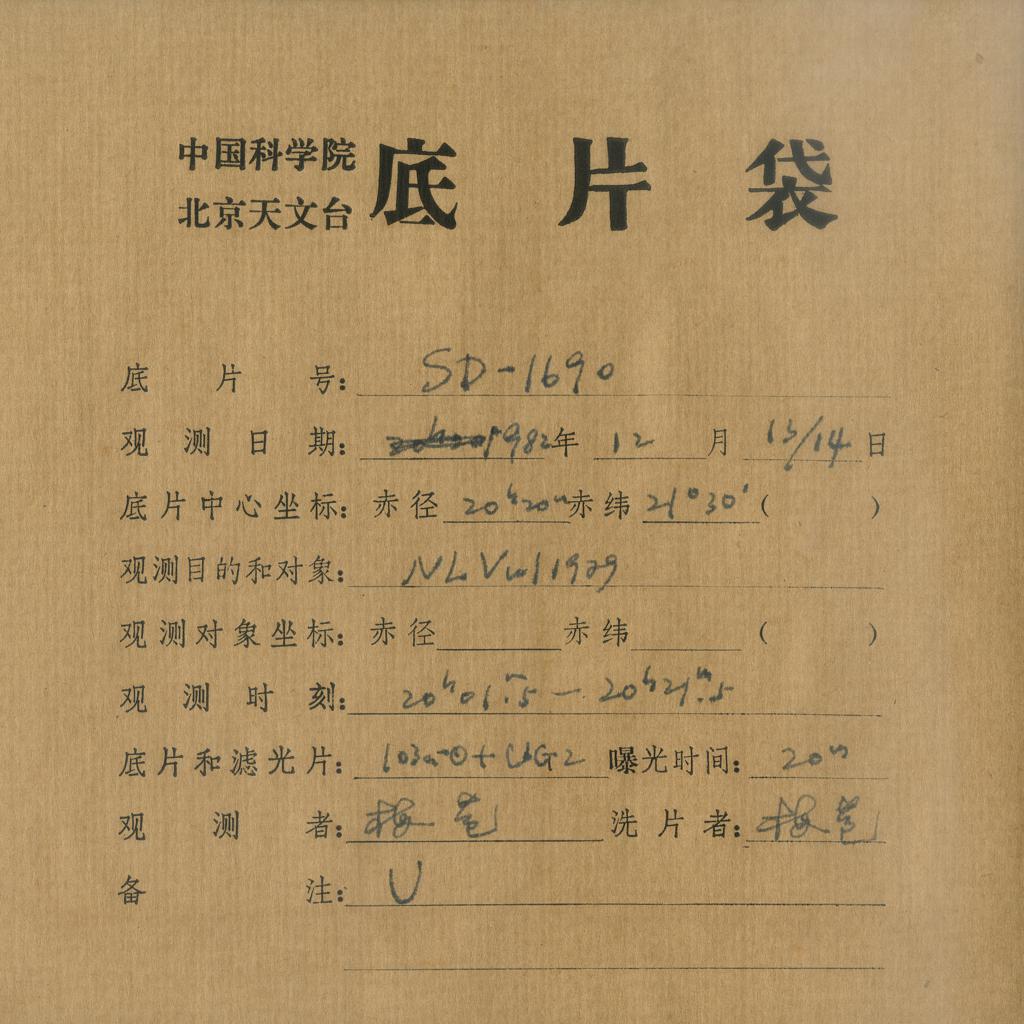 中国科学院
北京天文台
底片袋
底片号: SD-1690
观测日期: 1982年 12月 13/14日
底片中心坐标: 赤径 20h20m 赤纬 21°30' ( )
观测目的和对象: NLVul1929
观测对象坐标: 赤径 赤纬 ( )
观测时刻: 20h01m.5 — 20h21m.5
底片和滤光片: 103a-O+UG2 曝光时间: 20m
观测者: 梅苞 洗片者: 梅苞
备注: U